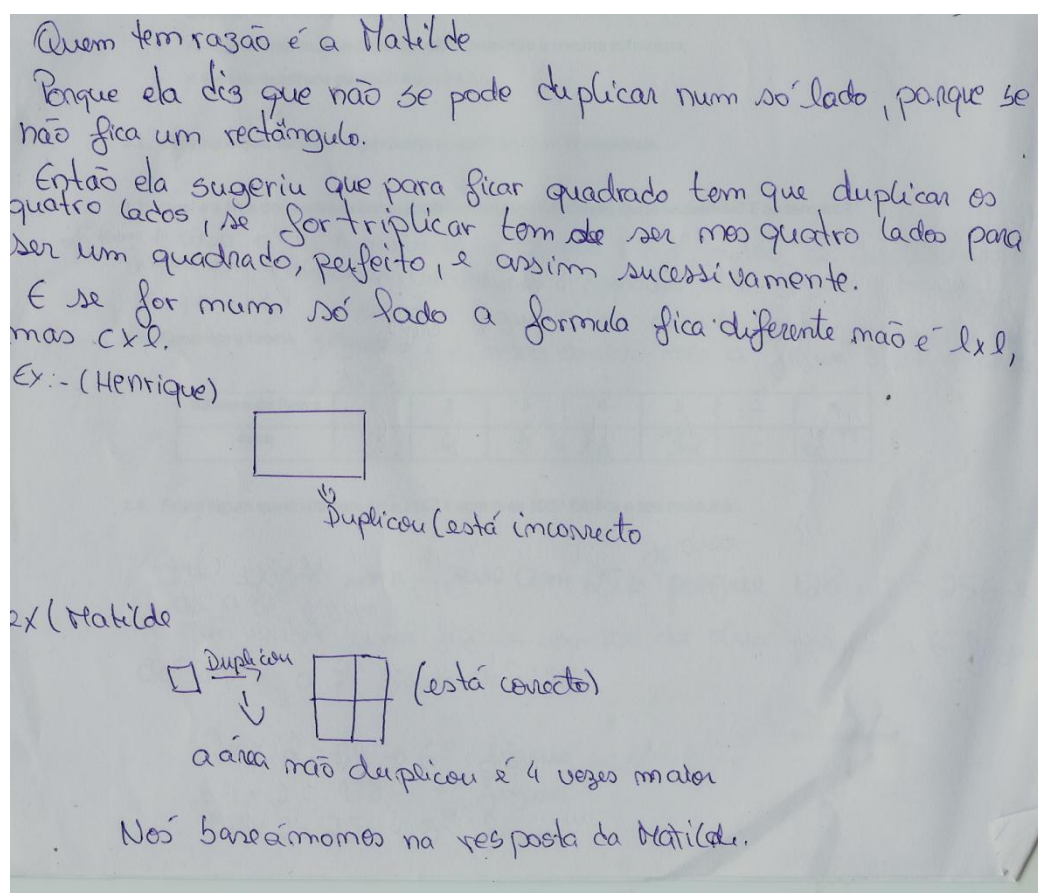 Quem tem razão é a Matilde
Porque ela diz que não se pode duplicar num só lado, porque se
não fica um rectângulo.
Então ela sugeriu que para ficar quadrado tem que duplicar os
quatro lados, se for triplicar tem de ser nos quatro lados para
ser um quadrado, perfeito, e assim sucessivamente.
E se for num só lado a formula fica diferente não é lxl,
mas cxl.
Ex:- (Henrique)
Duplicou (está incorrecto
ex (Matilde
Duplicou
(está correcto)
a área não duplicou é 4 vezes maior
Nós baseámonos na resposta da Matilde.